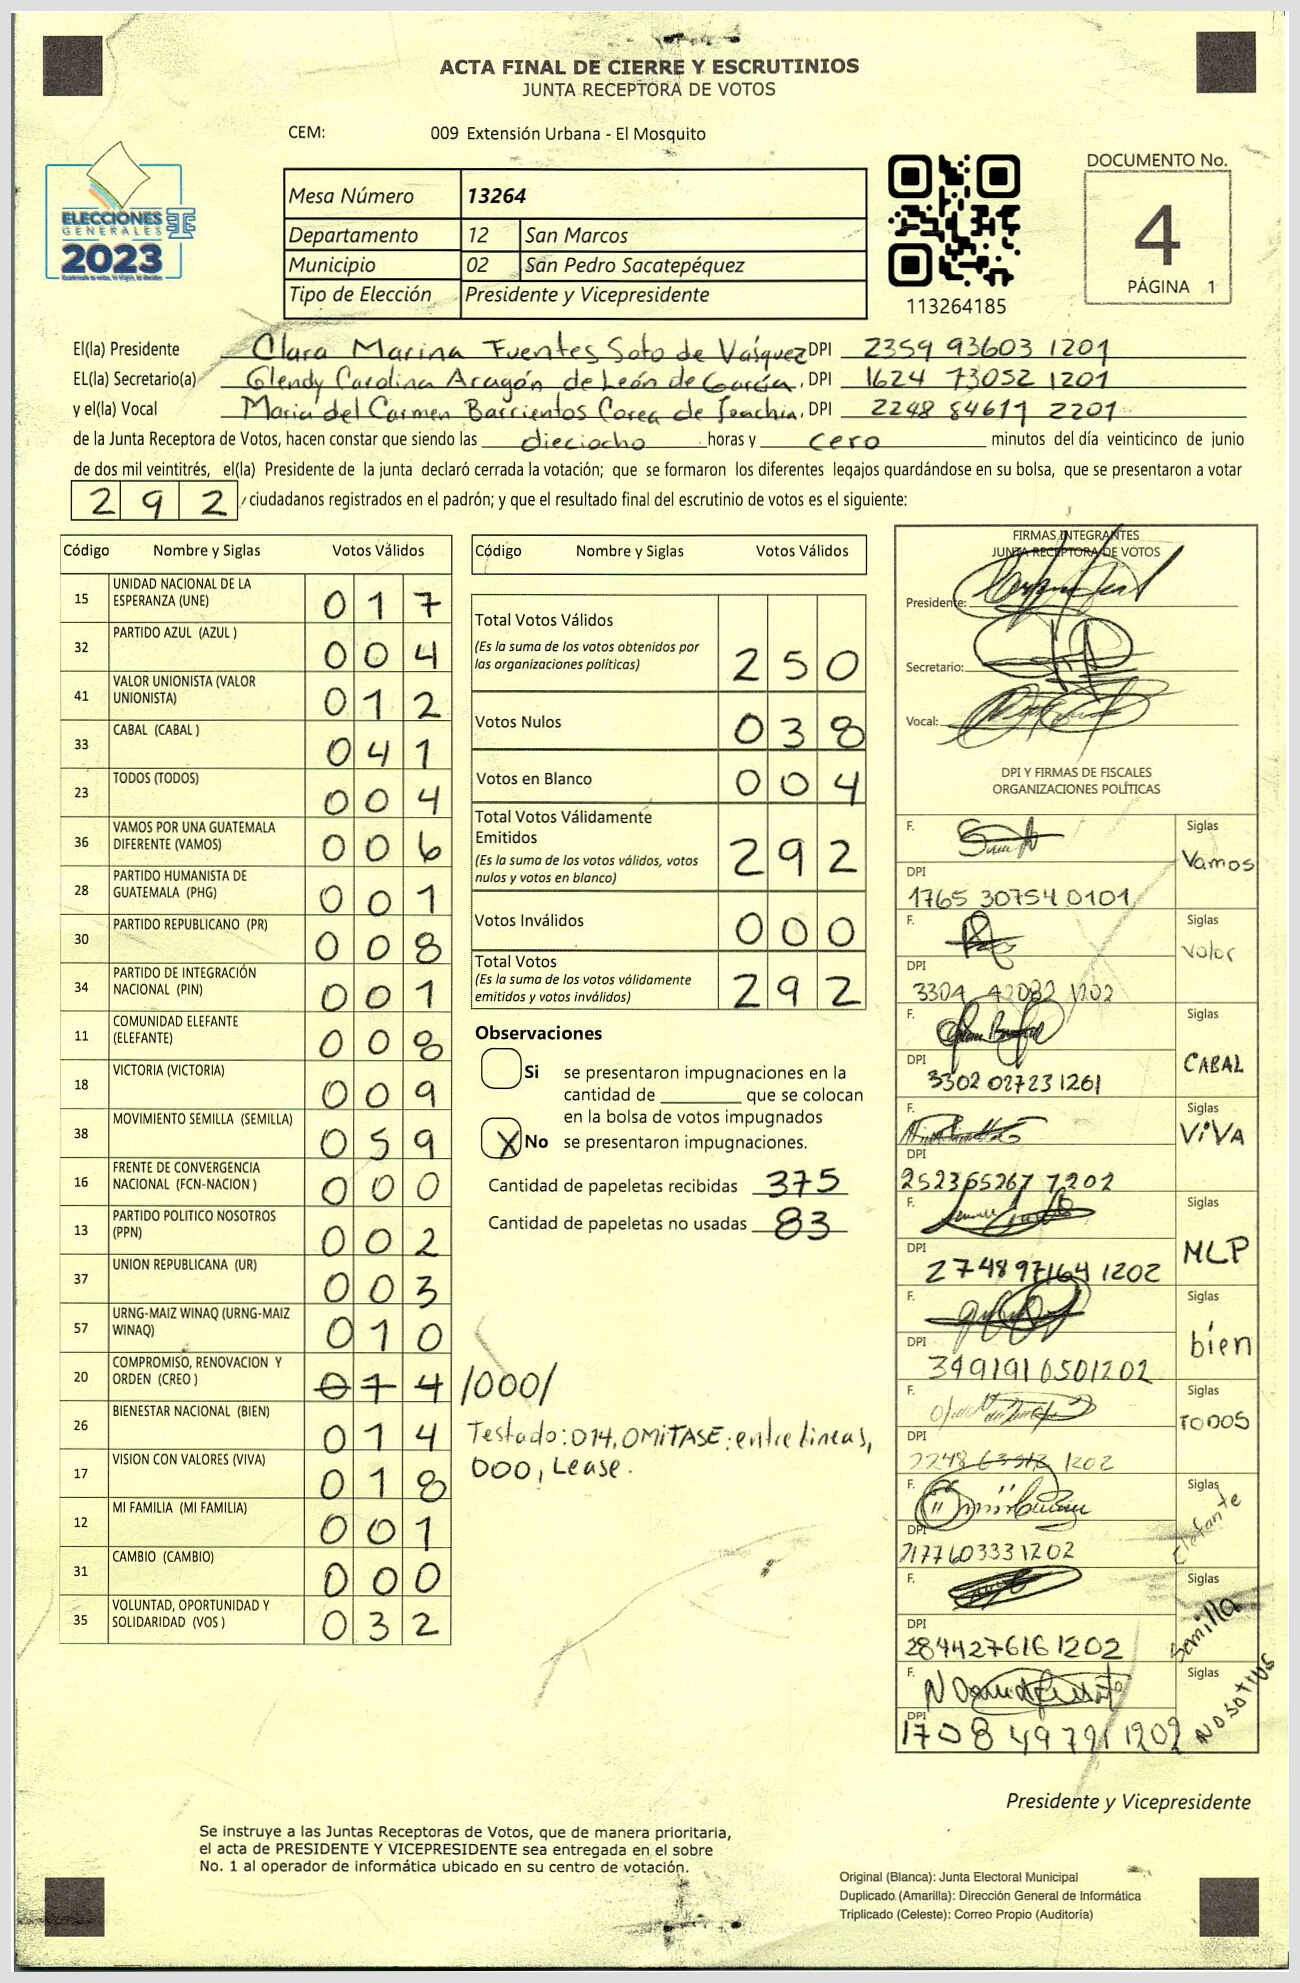 ACTA FINAL DE CIERRE Y ESCRUTINIOS
JUNTA RECEPTORA DE VOTOS
CEM: 009 Extensión Urbana - El Mosquito
ELECCIONES
GENERALES
2023
Mesa Número 13264
Departamento 12 San Marcos
Municipio 02 San Pedro Sacatepéquez
Tipo de Elección Presidente y Vicepresidente
113264185
DOCUMENTO No.
4
PÁGINA 1
El(la) Presidente Clara Marina Fuentes Soto de Vasquez DPI 2359 93603 1201
EL(la) Secretario(a) Glendy Carolina Aragón de León de García, DPI 1624 73052 1201
y el(la) Vocal Maria del Carmen Barrientos Corea de, DPI 2248 84611 2201
de la Junta Receptora de Votos, hacen constar que siendo las dieciocho horas y cero minutos del día veinticinco de junio
de dos mil veintitrés, el(la) Presidente de la junta declaró cerrada la votación; que se formaron los diferentes legajos guardándose en su bolsa, que se presentaron a votar
292 ciudadanos registrados en el padrón; y que el resultado final del escrutinio de votos es el siguiente:
Código Nombre y Siglas Votos Válidos
15 UNIDAD NACIONAL DE LA ESPERANZA (UNE) 017
32 PARTIDO AZUL (AZUL ) 004
41 VALOR UNIONISTA (VALOR UNIONISTA) 012
33 CABAL (CABAL ) 041
23 TODOS (TODOS) 004
36 VAMOS POR UNA GUATEMALA DIFERENTE (VAMOS) 006
28 PARTIDO HUMANISTA DE GUATEMALA (PHG) 001
30 PARTIDO REPUBLICANO (PR) 008
34 PARTIDO DE INTEGRACIÓN NACIONAL (PIN) 001
11 COMUNIDAD ELEFANTE (ELEFANTE) 008
18 VICTORIA (VICTORIA) 009
38 MOVIMIENTO SEMILLA (SEMILLA) 059
16 FRENTE DE CONVERGENCIA NACIONAL (FCN-NACION ) 000
13 PARTIDO POLITICO NOSOTROS (PPN) 002
37 UNION REPUBLICANA (UR) 003
57 URNG-MAIZ WINAQ (URNG-MAIZ WINAQ) 010
20 COMPROMISO, RENOVACION Y ORDEN (CREO ) 014 /000/
26 BIENESTAR NACIONAL (BIEN) 014
17 VISION CON VALORES (VIVA) 018
12 MI FAMILIA (MI FAMILIA) 001
31 CAMBIO (CAMBIO) 000
35 VOLUNTAD, OPORTUNIDAD Y SOLIDARIDAD (VOS ) 032
Código Nombre y Siglas Votos Válidos
Total Votos Válidos 250
(Es la suma de los votos obtenidos por
las organizaciones políticas)
Votos Nulos 038
Votos en Blanco 004
Total Votos Válidamente
Emitidos 292
(Es la suma de los votos válidos, votos
nulos y votos en blanco)
Votos Inválidos 000
Total Votos 292
(Es la suma de los votos válidamente
emitidos y votos inválidos)
Observaciones
Si se presentaron impugnaciones en la
cantidad de ________ que se colocan
en la bolsa de votos impugnados
X No se presentaron impugnaciones.
Cantidad de papeletas recibidas 375
Cantidad de papeletas no usadas 83
Testado: 014, OMITASE: entre lineas,
000, Lease.
FIRMAS INTEGRANTES
JUNTA RECEPTORA DE VOTOS
Presidente:
Secretario:
Vocal:
DPI Y FIRMAS DE FISCALES
ORGANIZACIONES POLÍTICAS
F. Siglas Vamos
DPI 1765 30754 0101
F. Siglas Valor
DPI 3304 42082 1202
F. Siglas CABAL
DPI 3302 02723 1261
F. Siglas VIVA
DPI 252365267 1202
F. Siglas MLP
DPI 2748 97164 1202
F. Siglas bien
DPI 349191050 1202
F. Siglas TODOS
DPI 2248 1202
F. Siglas Elefante
DPI 217760333 1202
F. Siglas Semilla
DPI 284427616 1202
F. Siglas NOSOTROS
DPI 1708 49791 1202
Presidente y Vicepresidente
Se instruye a las Juntas Receptoras de Votos, que de manera prioritaria,
el acta de PRESIDENTE Y VICEPRESIDENTE sea entregada en el sobre
No. 1 al operador de informática ubicado en su centro de votación.
Original (Blanca): Junta Electoral Municipal
Duplicado (Amarilla): Dirección General de Informática
Triplicado (Celeste): Correo Propio (Auditoría)